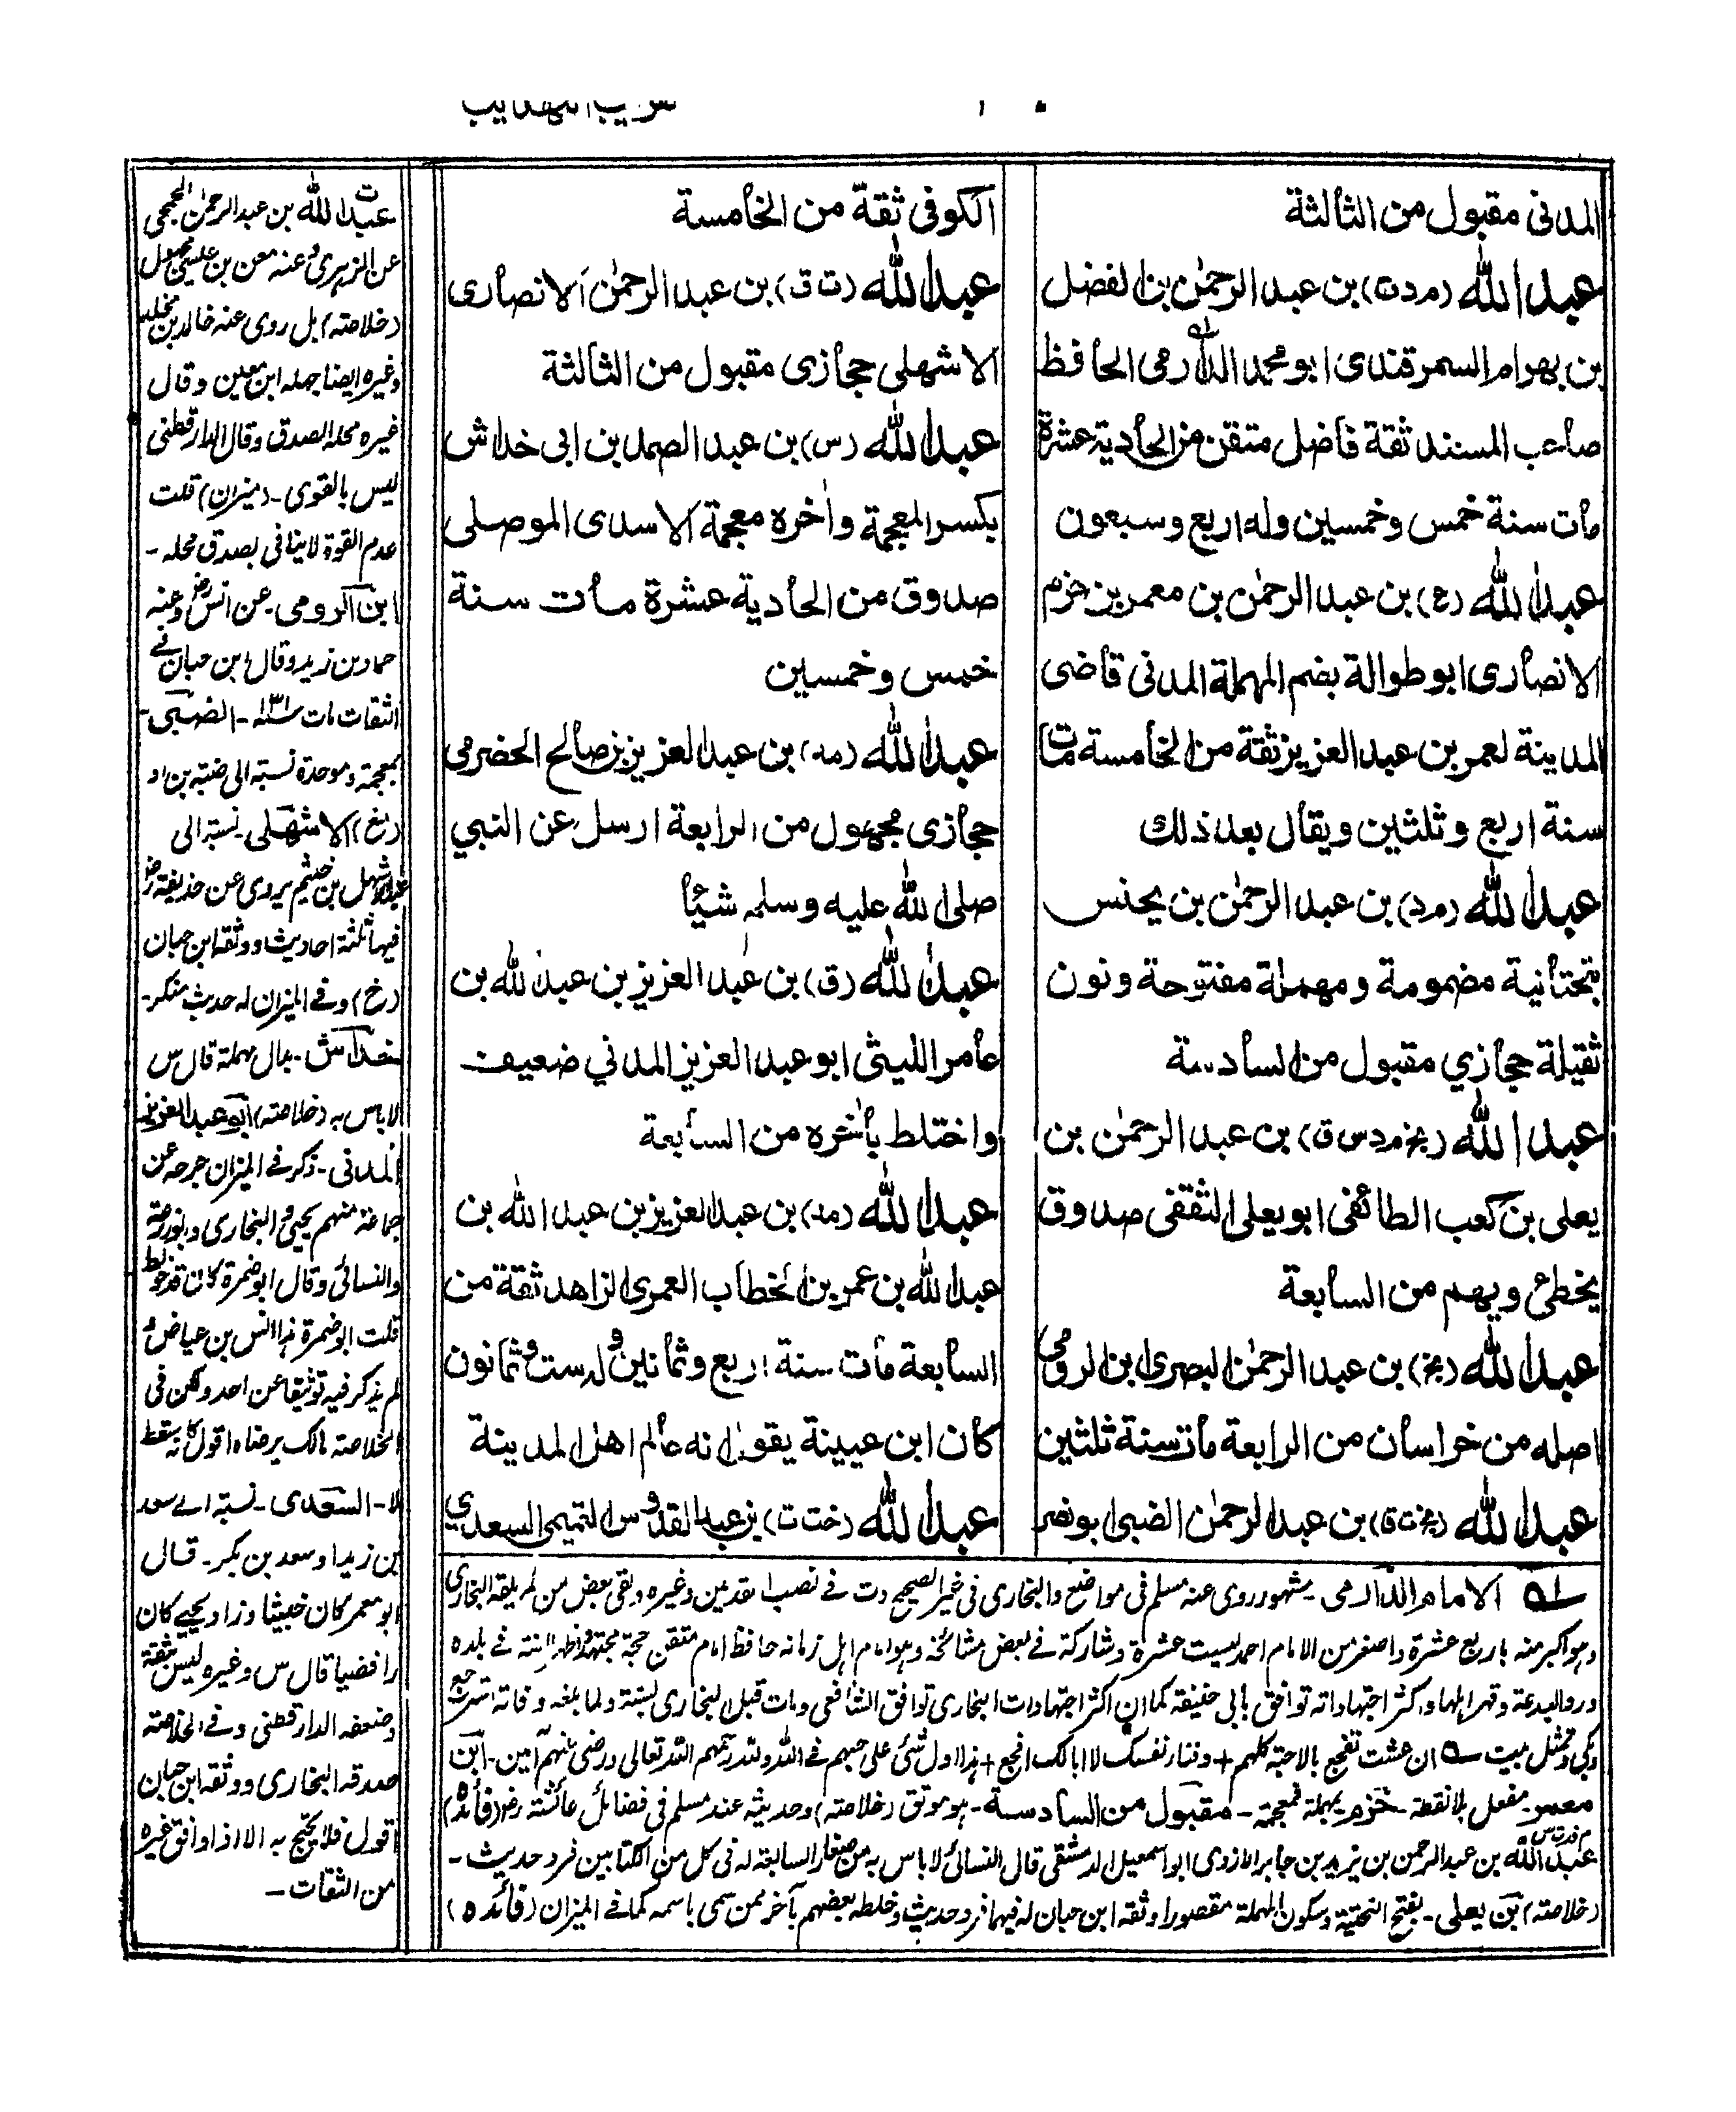 المدنی مقبول من الثالثة
عبد الله (م د ت) بن عبد الرحمٰن بن الفضل
بن بهرام السمرقندی ابو محمد الدارمی الحافظ
صاحب المسند ثقة فاضل متقن من الحادیة عشرة
مات سنة خمس وخمسین وله اربع وسبعون
عبد الله (ع) بن عبد الرحمٰن بن معمر بن حزم
الانصاری ابو طوالة بضم المهملة المدنی قاضی
المدینة لعمر بن عبد العزیز ثقة من الخامسة مات
سنة اربع وثلثین ویقال بعد ذلك
عبد الله (مد) بن عبد الرحمٰن بن یحنس
بتحتانیة مضمومة ومهملة مفتوحة ونون
ثقیلة حجازي مقبول من السادسة
عبد الله (بخ م د س ق) بن عبد الرحمٰن بن
یعلی بن کعب الطائفی ابو یعلی الثقفی صدوق
یخطئ ویهم من السابعة
عبد الله (بخ) بن عبد الرحمٰن البصری ابن الرومی
اصله من خراسان من الرابعة مات سنة ثلثین
عبد الله (بخ ت ق) بن عبد الرحمٰن الضبی ابو نصر
الکوفی ثقة من الخامسة
عبد الله (ت ق) بن عبد الرحمٰن الانصاری
الاشهلی حجازی مقبول من الثالثة
عبد الله (س) بن عبد الصمد بن ابی خداش
بکسر المعجمة واٰخره معجمة الاسدی الموصلی
صدوق من الحادیة عشرة مات سنة
خمس وخمسین
عبد الله (مد) بن عبد العزیز بن صالح الحضرمی
حجازی مجهول من الرابعة ارسل عن النبي
صلی الله علیه وسلم شیئا
عبد الله (ق) بن عبد العزیز بن عبد الله بن
عامر اللیثی ابو عبد العزیز المدني ضعیف
واختلط باٰخره من السابعة
عبد الله (مد) بن عبد العزیز بن عبد الله بن
عبد الله بن عمر بن الخطاب العمری الزاهد ثقة من
السابعة مات سنة اربع وثمانین وله ست وثمانون
کان ابن عیینة یقول انه عالم اهل المدینة
عبد الله (خت ت) بن عبد القدوس التمیمی السعدي
الامام الدارمی - مشهور روی عنه مسلم فی مواضع والبخاری فی غیر الصحیح ود ت فے وغیره ولقی بعض من لم یلقه البخاری
وهو اکبر منه باربع عشرة واصغر من الامام احمد بست عشرة وشارکه فے بعض مشائخه وهو امام اهل زمانه حافظ امام متقن حجة مجتهد السنة فے بلده
اجتهاداته توافق بابی حنیفة کما ان اکثر اجتهادات البخاری توافق الشافعی ومات قبل البخاری بسنة ولما بلغه وفاته استرجع
وبکی وتمثل ببیت ان عشت تفجع بالاحبة کلهم + وفناء نفسک لا ابا لک افجع + تعالی ورضی عنهم آمین - ابن
معمر - مفعل بلا نقطة - حزم بمهملة فمعجمة - مقبول من السادسة - هو موثق (خلاصته) وحدیثه عند مسلم فی فضائل عائشة رض (فائده)
عبد الله بن عبد الرحمن بن یزید بن جابر الازدی ابو اسمعیل الدمشقی قال النسائی لا باس به من صغار السابعة له فی کل من الکتابین فرد حدیث -
(خلاصته) بن یعلی - بفتح التحتیة وسکون المهملة مقصورا وثقه ابن حبان له فیهما فرد حدیث وخلطه بعضهم بآخر ممن سمی باسمه کما فے المیزان (فائده)
عبد الله بن عبد الرحمٰن الجمحی
عن الزهری وعنه معن بن عیسی مجهول
(خلاصته) بل روی عنه خالد بن مخلد
وغیره ایضا جهله ابن معین وقال
غیره محله الصدق وقال الدارقطنی
لیس بالقوی - (میزان) قلت
عدم القوة لا ینافی بصدق محله -
ابن الرومی - عن انس رض وعنه
حماد بن زید وقال ابن حبان فے
الثقات مات سنه ۱۳۱ - الضبی -
بمعجمة وموحدة نسبة الی ضبة بن اد
(مغ) الاشهلی - نسبة الی
عبد الاشهل بن خثیم یروی عن حذیفة رض
فیهما ثلثة احادیث ووثقه ابن حبان
(خ) وفے المیزان له حدیث منکر -
خداش - بدال مهملة قال س
لا باس به (خلاصته) ابو عبد العزیز
المدنی - ذکر فے المیزان جرحه عن
جماعة منهم یحیی والبخاری وابو زرعة
والنسائی وقال ابو ضمرة کان قد خولط
قلت ابو ضمرة هذا انس بن عیاض و
لم یذکر فیه توثیقا عن احد ولکن فی
الخلاصته مالک یرضاه اقول کانه سقط
لا - السعدی - نسبة الے سعد
بن زید او سعد بن بکر - قال
ابو معمر کان خبیثا وزاد یحیے کان
رافضیا قال س وغیره لیس بثقة
وضعفه الدارقطنی وفے الخلاصته
صدقه البخاری ووثقه ابن حبان
اقول فلا یحتج به الا اذا وافق غیره
من الثقات -